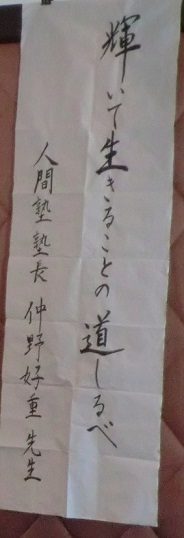 輝いて生きることの道しるべ
人間塾塾長 仲野好重先生